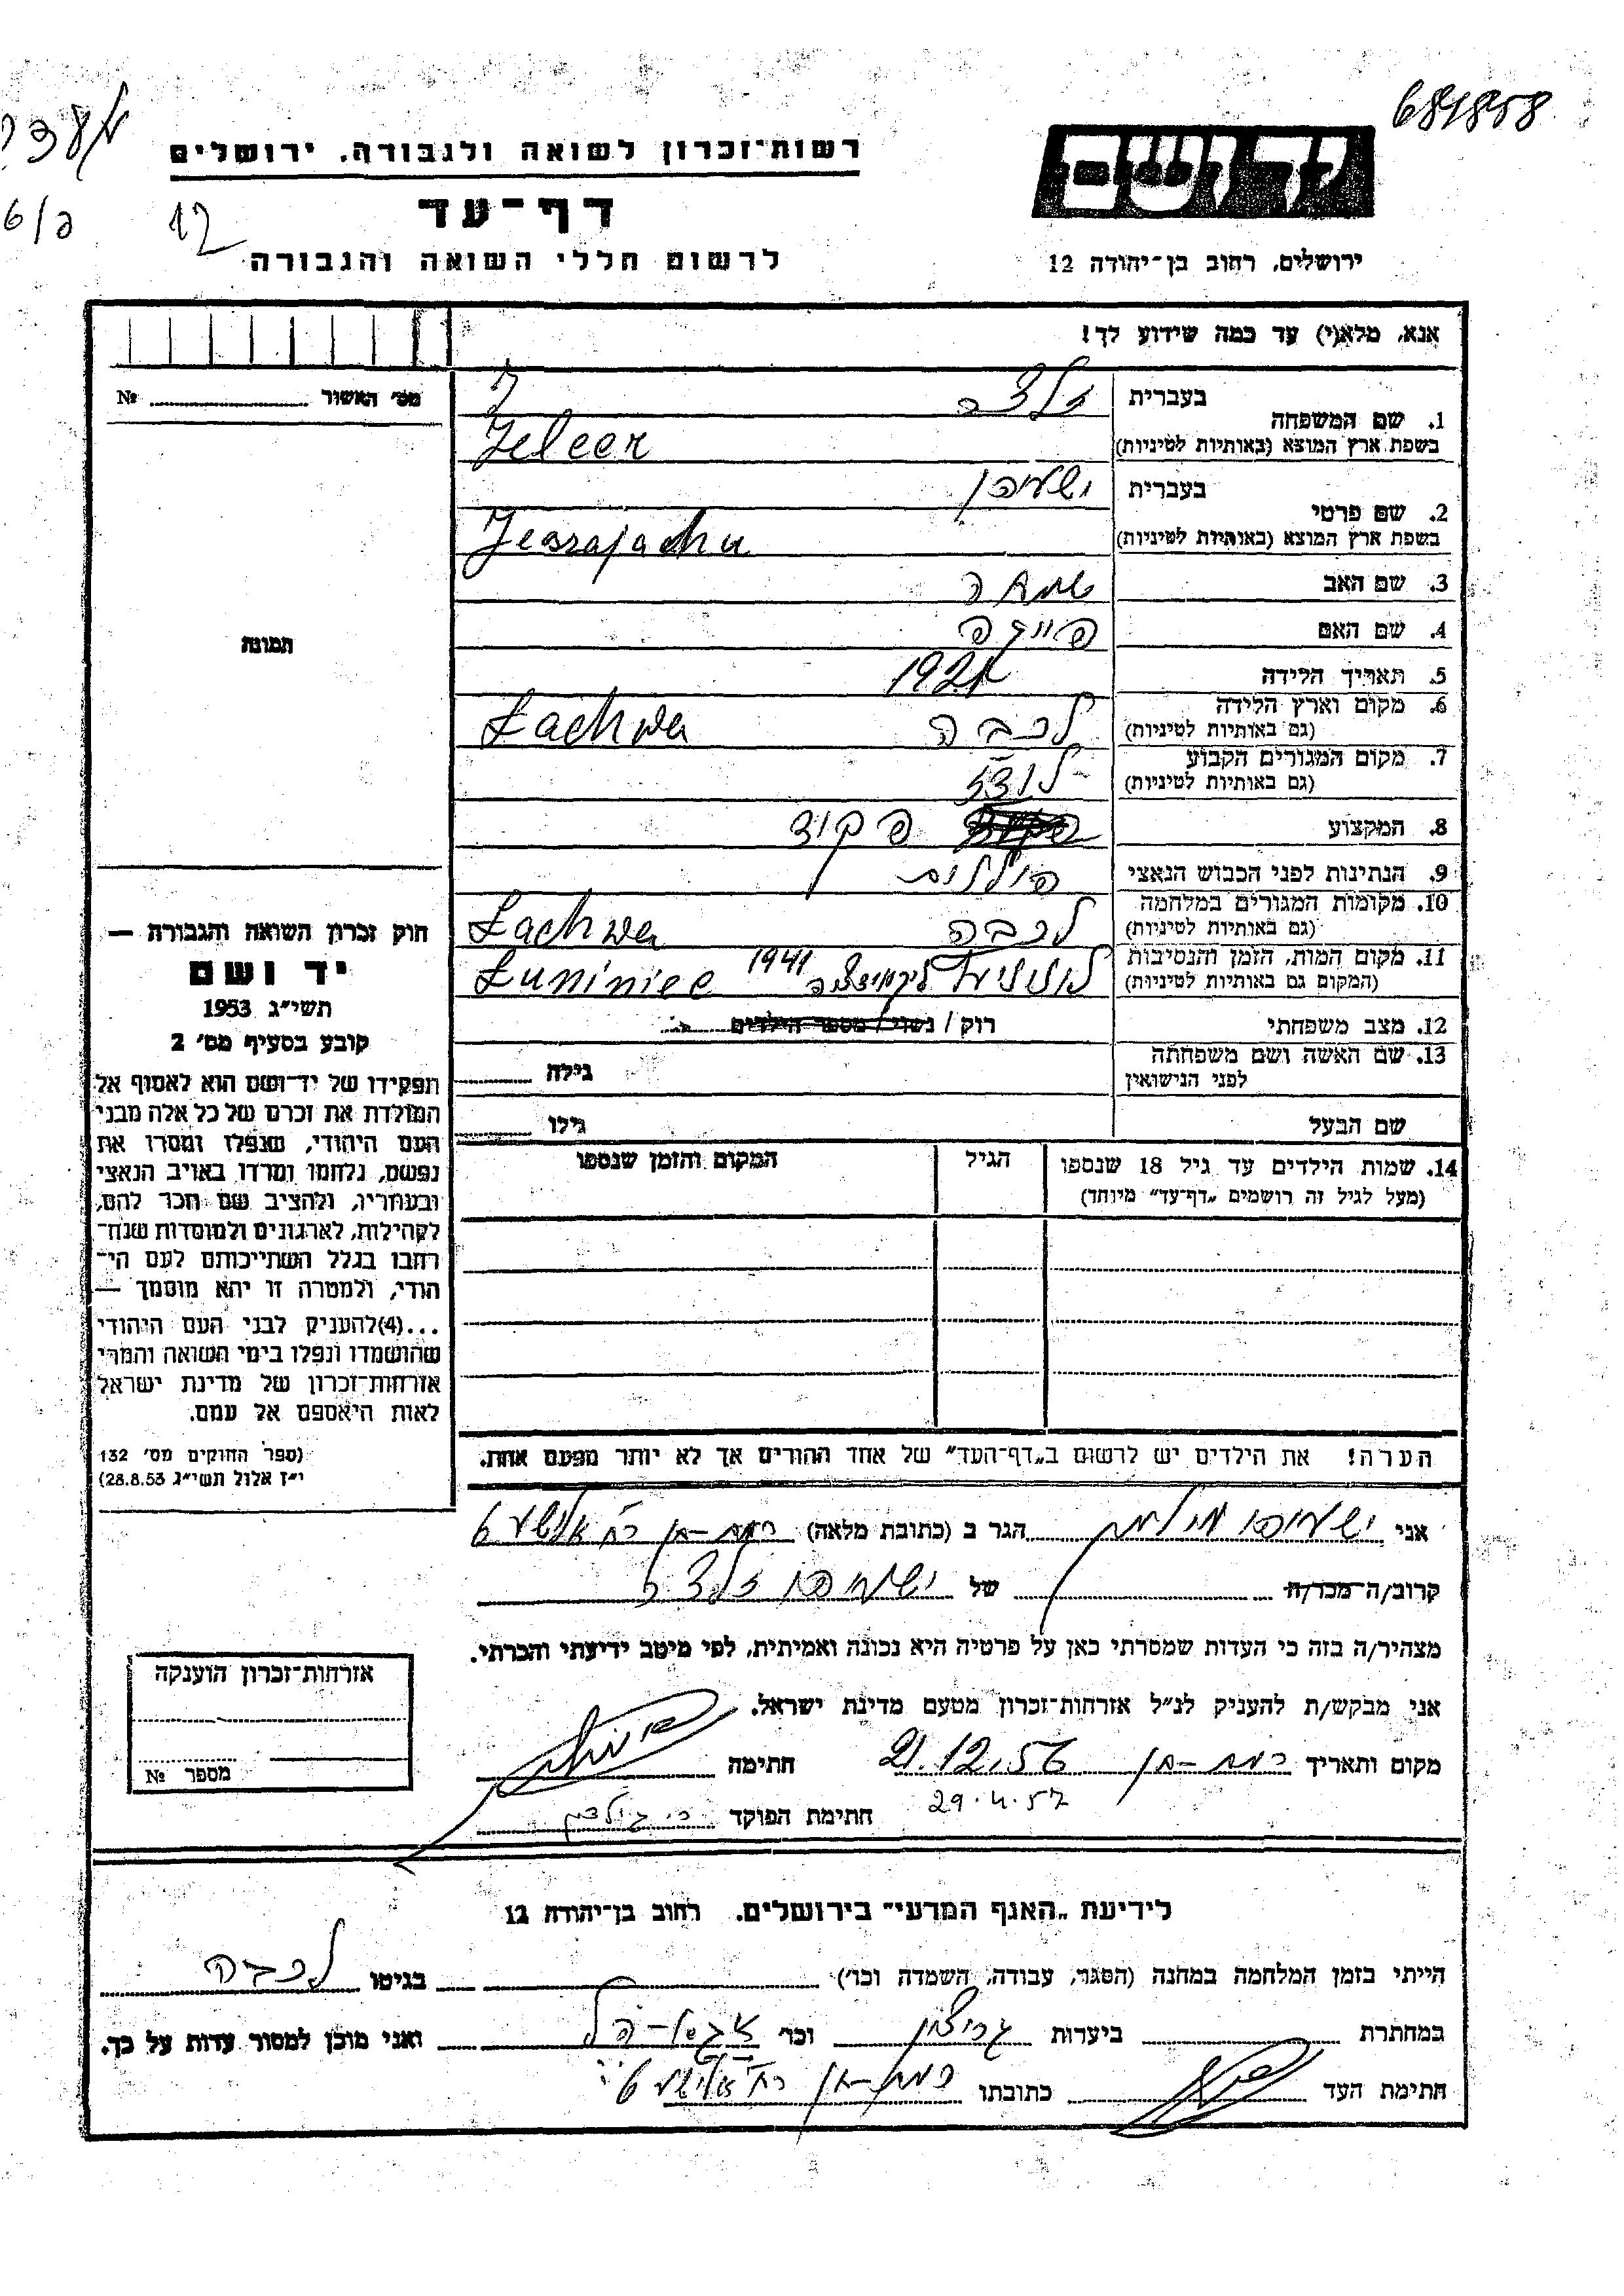 681858
רשות־זכרון לשואה ולגבורה. ירושלים
יד ושם
דף־עד
12
לרשום חללי השואה והגבורה
ירושלים, רחוב בן־יהודה 12
אנא, מלא(י) עד כמה שידוע לך!
מס׳ האשור № 
1. שם המשפחה
בעברית
בשפת ארץ המוצא (באותיות לטיניות)
Zelcer
2. שם פרטי
בעברית ישעיהו
בשפת ארץ המוצא (באותיות לטיניות) Jeszajachu
3. שם האב
4. שם האם
5. תאריך הלידה
6. מקום וארץ הלידה
(גם באותיות לטיניות)
לכבה Łachwa
7. מקום המגורים הקבוע
(גם באותיות לטיניות)
לודז
8. המקצוע פקיד
9. הנתינות לפני הכבוש הנאצי
10. מקומות המגורים במלחמה
(גם באותיות לטיניות)
לכבה Łachwa
11. מקום המות, הזמן והנסיבות
(המקום גם באותיות לטיניות)
1941 Łuniniec
12. מצב משפחתי
רוק / נשוי / מספר הילדים
13. שם האשה ושם משפחתה
לפני הנישואין
גילה
שם הבעל
גילו
14. שמות הילדים עד גיל 18 שנספו
(מעל לגיל זה רושמים „דף־עד״ מיוחד)
הגיל
המקום והזמן שנספו
הערה! את הילדים יש לרשום ב„דף־העד״ של אחד ההורים אך לא יותר מפעם אחת.
תמונה
חוק זכרון השואה והגבורה —
יד ושם
תשי״ג 1953
קובע בסעיף מס׳ 2
תפקידו של יד־ושם הוא לאסוף אל
המולדת את זכרם של כל אלה מבני
העם היהודי, שנפלו ומסרו את
נפשם, נלחמו ומרדו באויב הנאצי
ובעוזריו, ולהציב שם וזכר להם,
לקהילות, לארגונים ולמוסדות שנח־
רבו בגלל השתייכותם לעם הי־
הודי, ולמטרה זו יהא מוסמך —
...(4)להעניק לבני העם היהודי
שהושמדו ונפלו בימי השואה והמרי
אזרחות־זכרון של מדינת ישראל
לאות היאספם אל עמם.
(ספר החוקים מס׳ 132
י״ז אלול תשי״ג 28.8.53)
אני הגר ב (כתובת מלאה) רמת-גן
קרוב/ה מכר/ה של ישעיהו
מצהיר/ה בזה כי העדות שמסרתי כאן על פרטיה היא נכונה ואמיתית, לפי מיטב ידיעתי והכרתי.
אני מבקש/ת להעניק לנ״ל אזרחות־זכרון מטעם מדינת ישראל.
מקום ותאריך רמת-גן 21.12.56 חתימה
29.4.57 חתימת הפוקד
אזרחות־זכרון הוענקה
מספר №
לידיעת „האגף המדעי״ בירושלים. רחוב בן־יהודה 12
הייתי בזמן המלחמה במחנה (הסגר, עבודה, השמדה וכו׳) בגיטו לכבה
במחתרת ביערות וכו׳ ואני מוכן למסור עדות על כך.
חתימת העד כתובתו רמת-גן